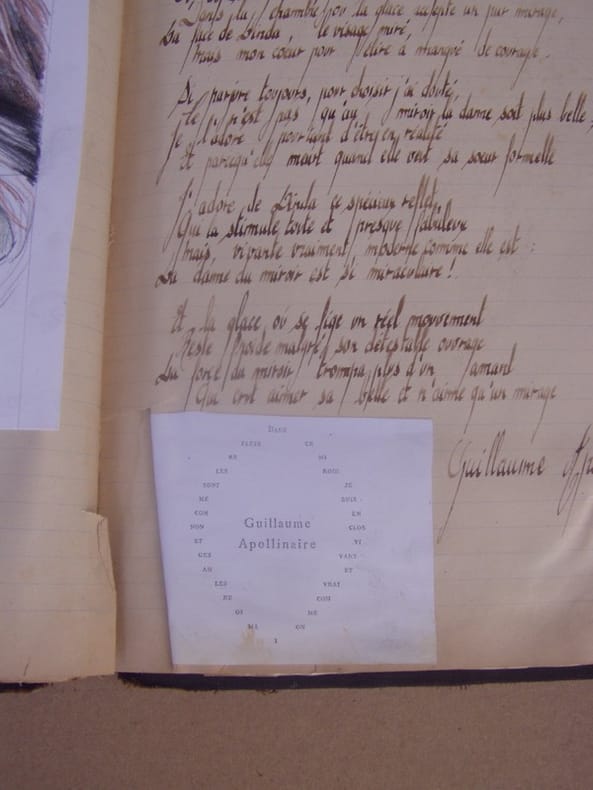 Dans la chambre où la glace accepte un pur mirage,
La face de Linda, le visage miré,
Mais mon coeur pour élire a manqué de courage.
De parfaire toujours, pour choisir j'ai douté,
Ce n'est pas qu'au miroir la dame soit plus belle,
Je l'adore pourtant d'être en réalité
Et parcequ'elle meurt quand elle veut sa soeur formelle
J'adore de Linda ce spécieux reflet
Qui la stimule toute et presque fabuleux
Mais, vivante vraiment, moderne comme elle est :
La dame du miroir est si miraculaire !
Et la glace, où se fige un réel mouvement
Reste froide malgré son détestable ouvrage
La force du miroir trompa plus d'un amant
Qui crut aimer sa belle et n'aima qu'un mirage
Guillaume
DANS
FLETS CE
RE MI
LES ROIR
SONT JE
ME SUIS
COM EN
NON CLOS
Guillaume
Apollinaire
ET VI
GES VANT
AN ET
LES VRAI
NE COM
GI ME
MA ON
I